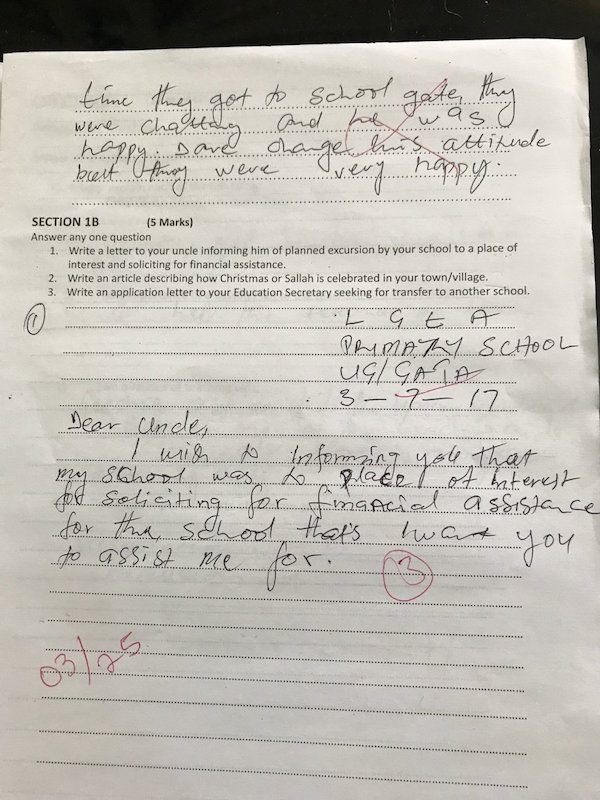 time they got to school gate, they
were chatting and he was
happy. Dave change his attitude
but they were very happy.
SECTION 1B (5 Marks)
Answer any one question
1. Write a letter to your uncle informing him of planned excursion by your school to a place of
interest and soliciting for financial assistance.
2. Write an article describing how Christmas or Sallah is celebrated in your town/village.
3. Write an application letter to your Education Secretary seeking for transfer to another school.
1
L G E A
PRIMARY SCHOOL
UG/GATA
3-7-17
Dear Uncle,
I wish to informing you that
my school was to place of interest
for soliciting for financial assistance
for the school that's I want you
to assist me for.
3
03/25